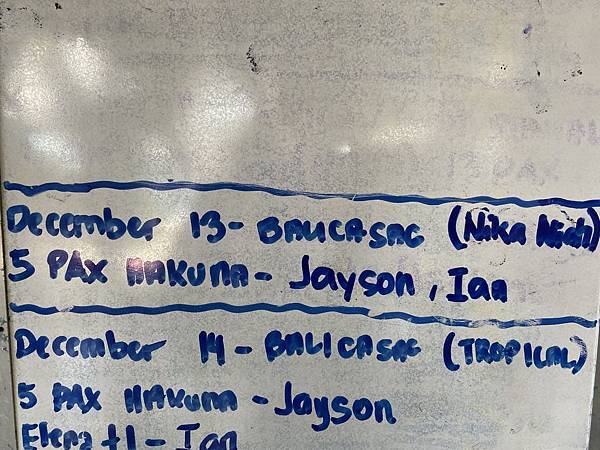 December 13 - BALICASAG (Nika Nich)
5 PAX HAKUNA - Jayson, Ian
December 14 - BALICASAG (TROPICAL)
5 PAX HAKUNA - Jayson
Elena +1 - Ian